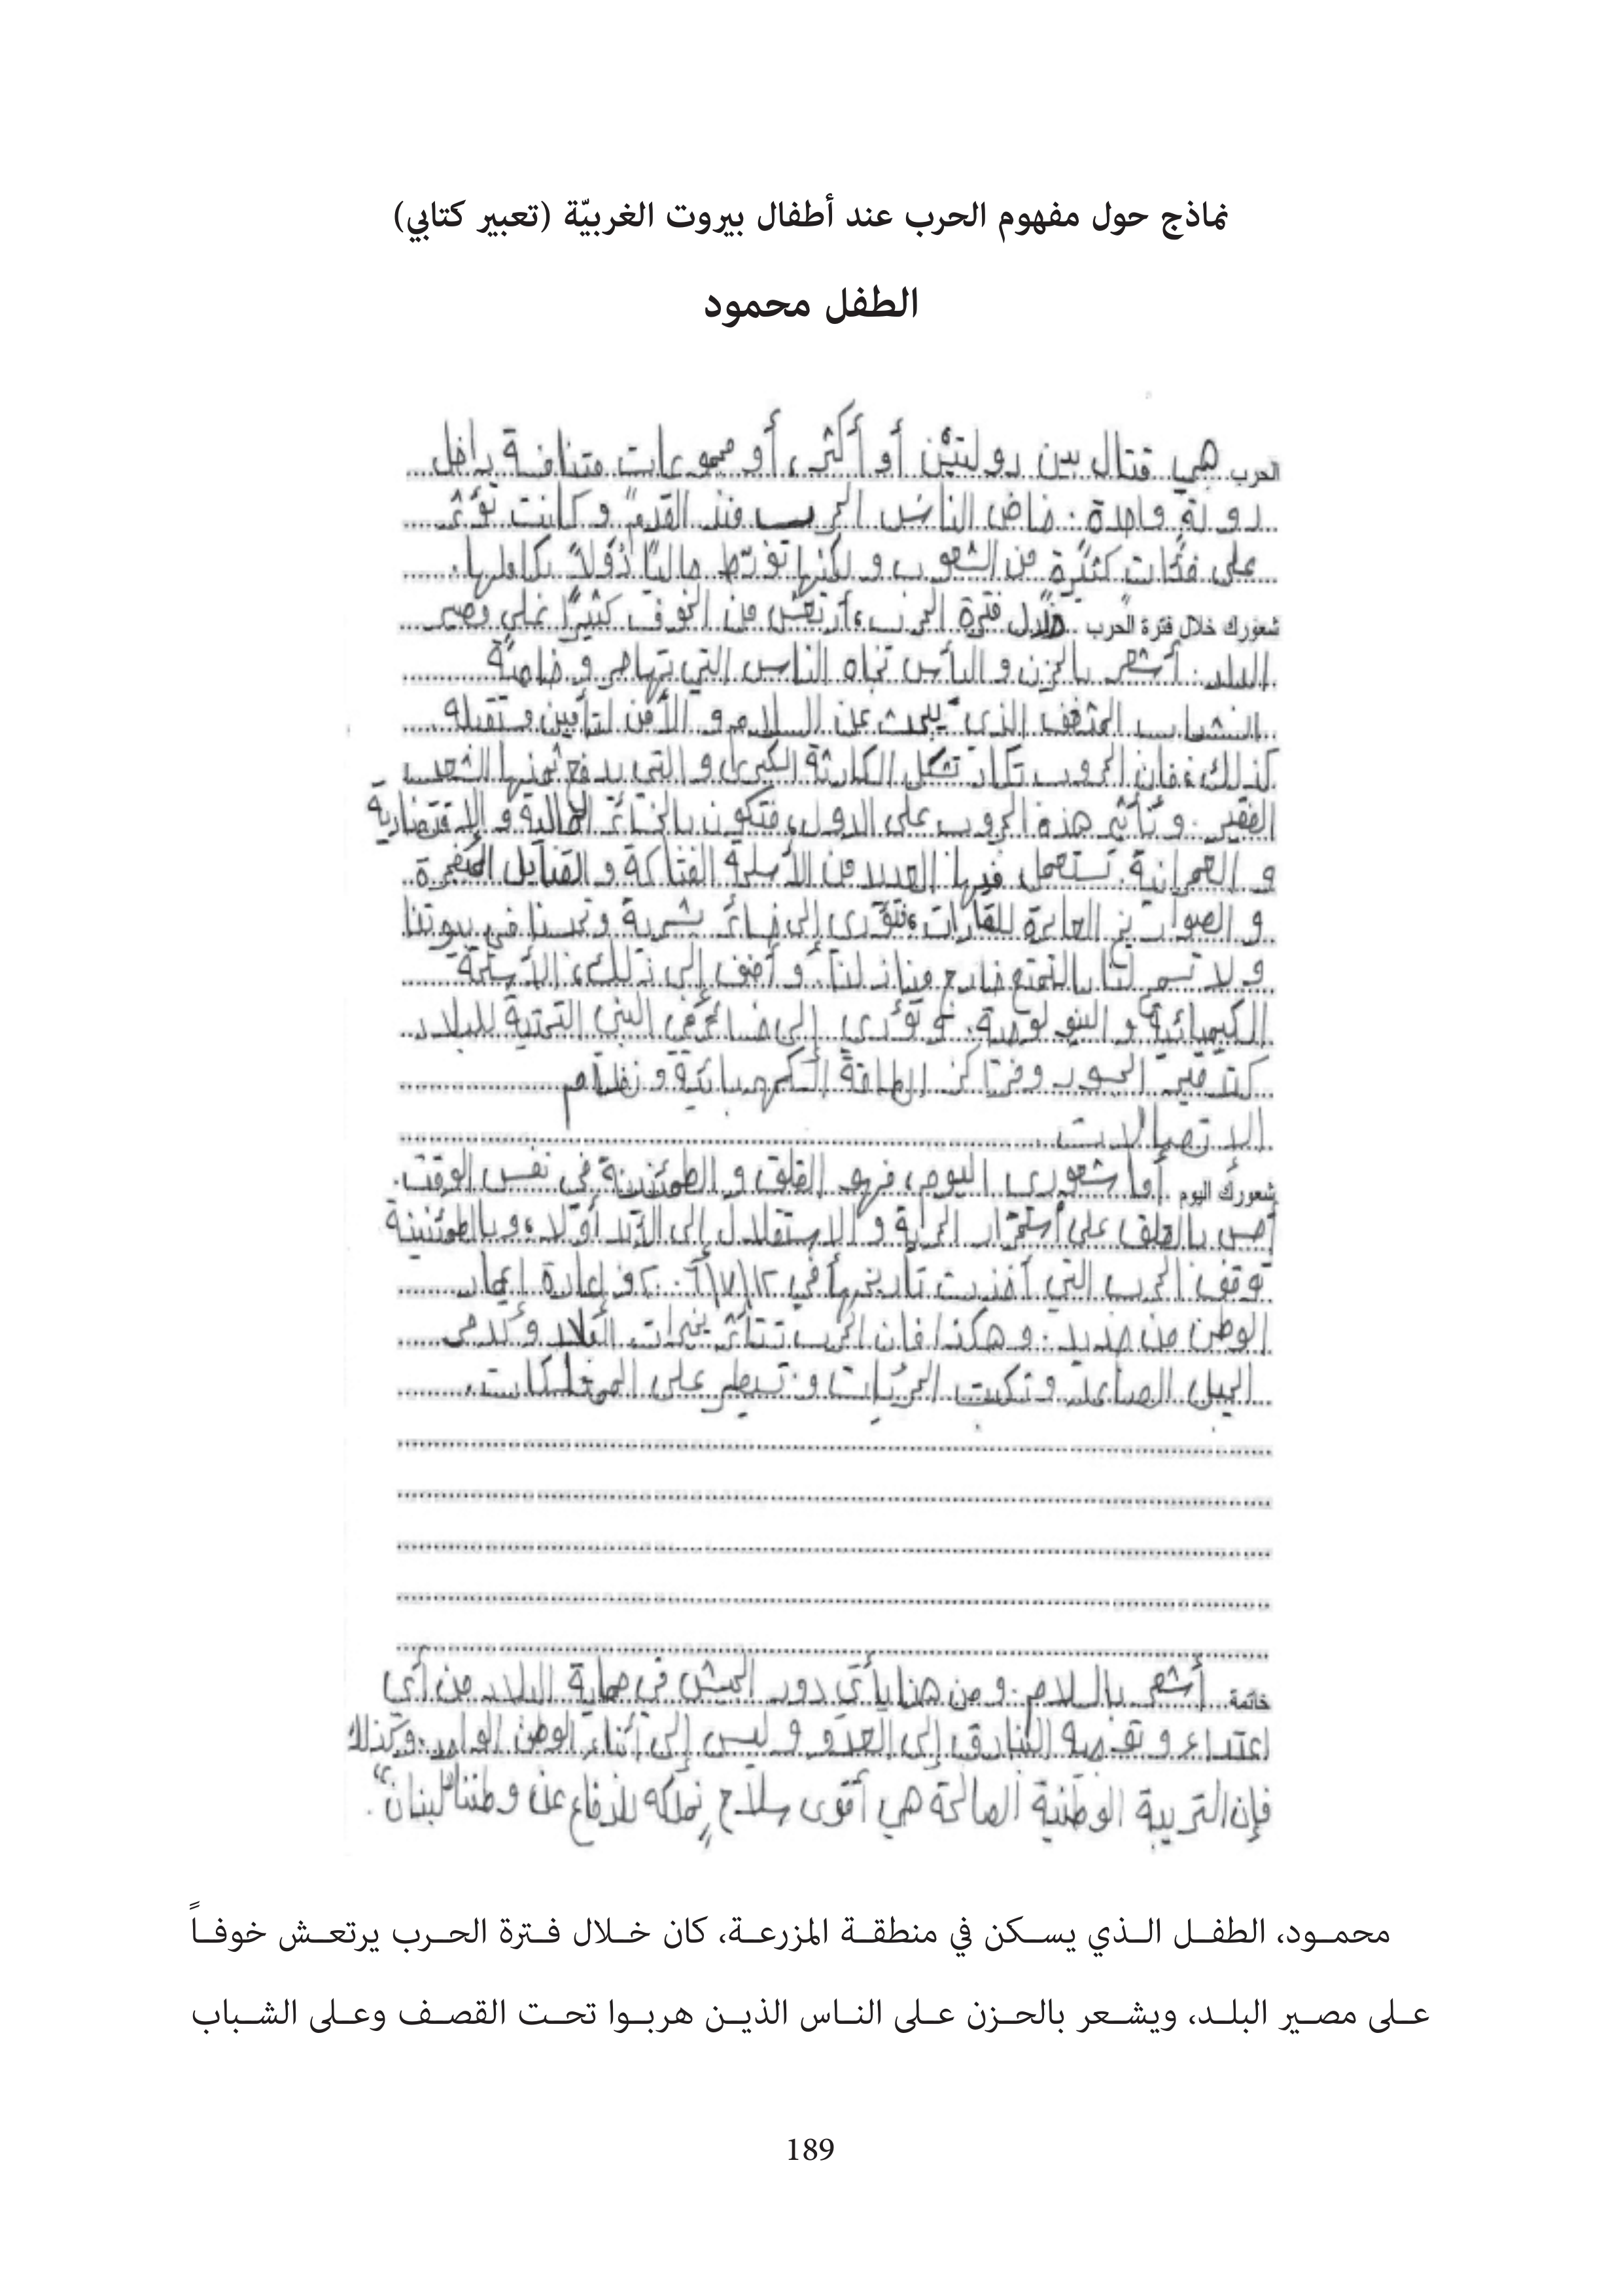 نماذج حول مفهوم الحرب عند أطفال بيروت الغربيّة (تعبير كتابي)
الطفل محمود
الحرب هي قتال بين دولتيْن أو أكثر، أو مجموعات متنافسة داخل
دولة واحدة. خاض الناس الحرب منذ القدم و كانت تؤثر
على فئات كثيرة من الشعوب و لكنها تورّط حاليًا دُوَلاً بكاملها.
شعورك خلال فترة الحرب خلال فترة الحرب، أرتعش من الخوف كثيرًا على مصير
البلد. أشعر بالحزن و اليأس تجاه الناس التي تهاجر و خاصة
الشباب المثقف الذي يبحث عن السلام و الأمن لتأمين مستقبله.
كذلك، فإن الحروب تكاد تشكل الكارثة الكبرى و التي يدفع ثمنها الشعب
الفقير. و تأثير هذه الحروب على الدول، فتكون بالخسائر المالية و الإقتصادية
و العمرانية. تستعمل فيها العديد من الأسلحة الفتاكة و القنابل المتفجرة
و الصواريخ العابرة للقارات، فتؤدي إلى خسائر بشرية وتحبسنا في بيوتنا
و لا تسمح لنا بالتمتع خارج منازلنا. و أضف إلى ذلك، الأسلحة
الكيميائية و البيولوجية. و تؤدي إلى خسائر في البنى التحتية للبلاد
كتدمير الجسور ومراكز الطاقة الكهربائية و نظام
الإتصالات
شعورك اليوم أما شعوري اليوم، فهو القلق و الطمئنينة في نفس الوقت.
أحس بالقلق على إستمرار الحرية و الإستقلال إلى الأبد أولا، و بالطمئنينة
توقف الحرب التي أخذت تاريخها في ٢٠٠٦/٧/١٢ و إعادة إعمار
الوطن من جديد. و هكذا فإن الحرب تتأثر بخيرات البلاد و تدمر
الجيل الصاعد و تكبت الحريات و تسيطر على الممتلكات.
خاتمة أشعر بالسلام. و من هنا يأتي دور الجيش في حماية البلاد من أي
اعتداء و توجيه البنادق إلى العدو و ليس إلى أبناء الوطن الواحد. وكذلك
فإن التربية الوطنية الصالحة هي أقوى سلاحٍ نملكه للدفاع عن وطننا "لبنان".
محمـود، الطفـل الـذي يسـكن في منطقـة المزرعـة، كان خـلال فـترة الحـرب يرتعـش خوفـاً
عـلى مصـير البلـد، ويشـعر بالحـزن عـلى النـاس الذيـن هربـوا تحـت القصـف وعـلى الشـباب
189